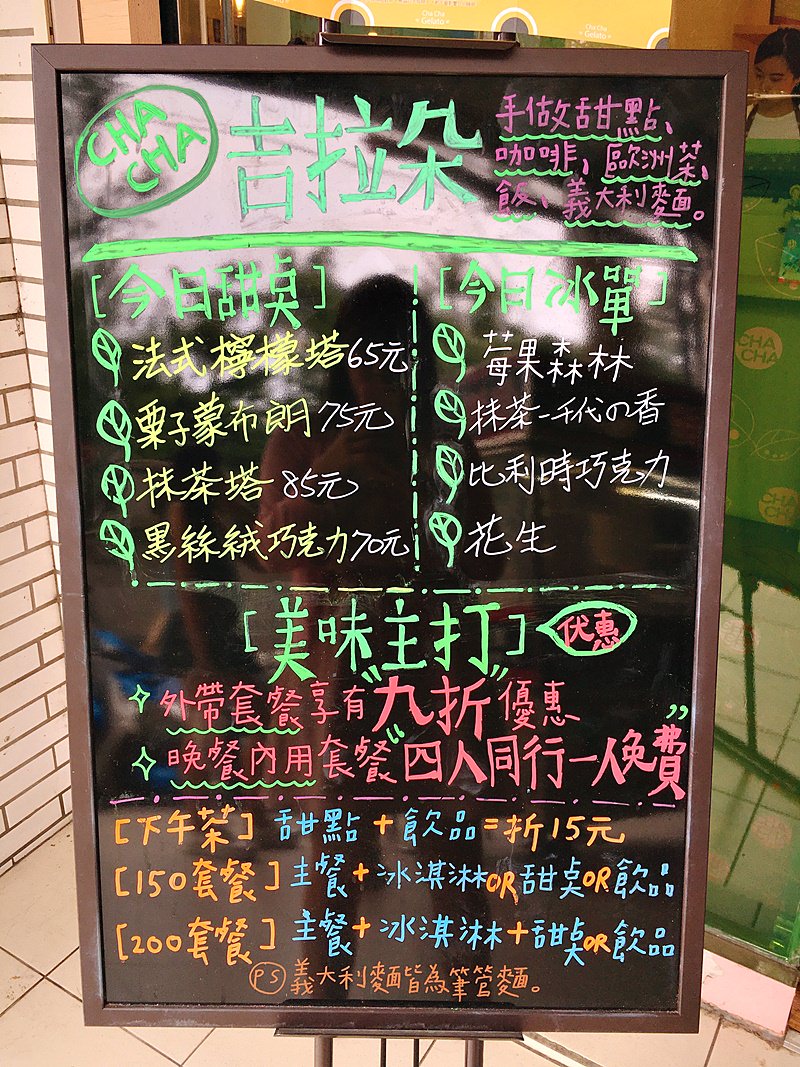 Cha Cha
« Gelato »
Cha Cha
« Gelato »
CHA CHA
吉拉朵
手做甜點、
咖啡、歐洲茶、
飯、義大利麵。
[今日甜桌]
法式檸檬塔65元
栗子蒙布朗75元
抹茶塔 85元
黑絲絨巧克力70元
[今日冰單]
莓果森林
抹茶-千代の香
比利時巧克力
花生
[美味主打] 優惠
外帶套餐享有"九折"優惠
晚餐內用套餐"四人同行一人免費"
[下午茶] 甜點+飲品=折15元
[150套餐] 主餐+冰淇淋OR甜桌OR飲品
[200套餐] 主餐+冰淇淋+甜桌OR飲品
PS 義大利麵皆為筆管麵。
CHA
CHA